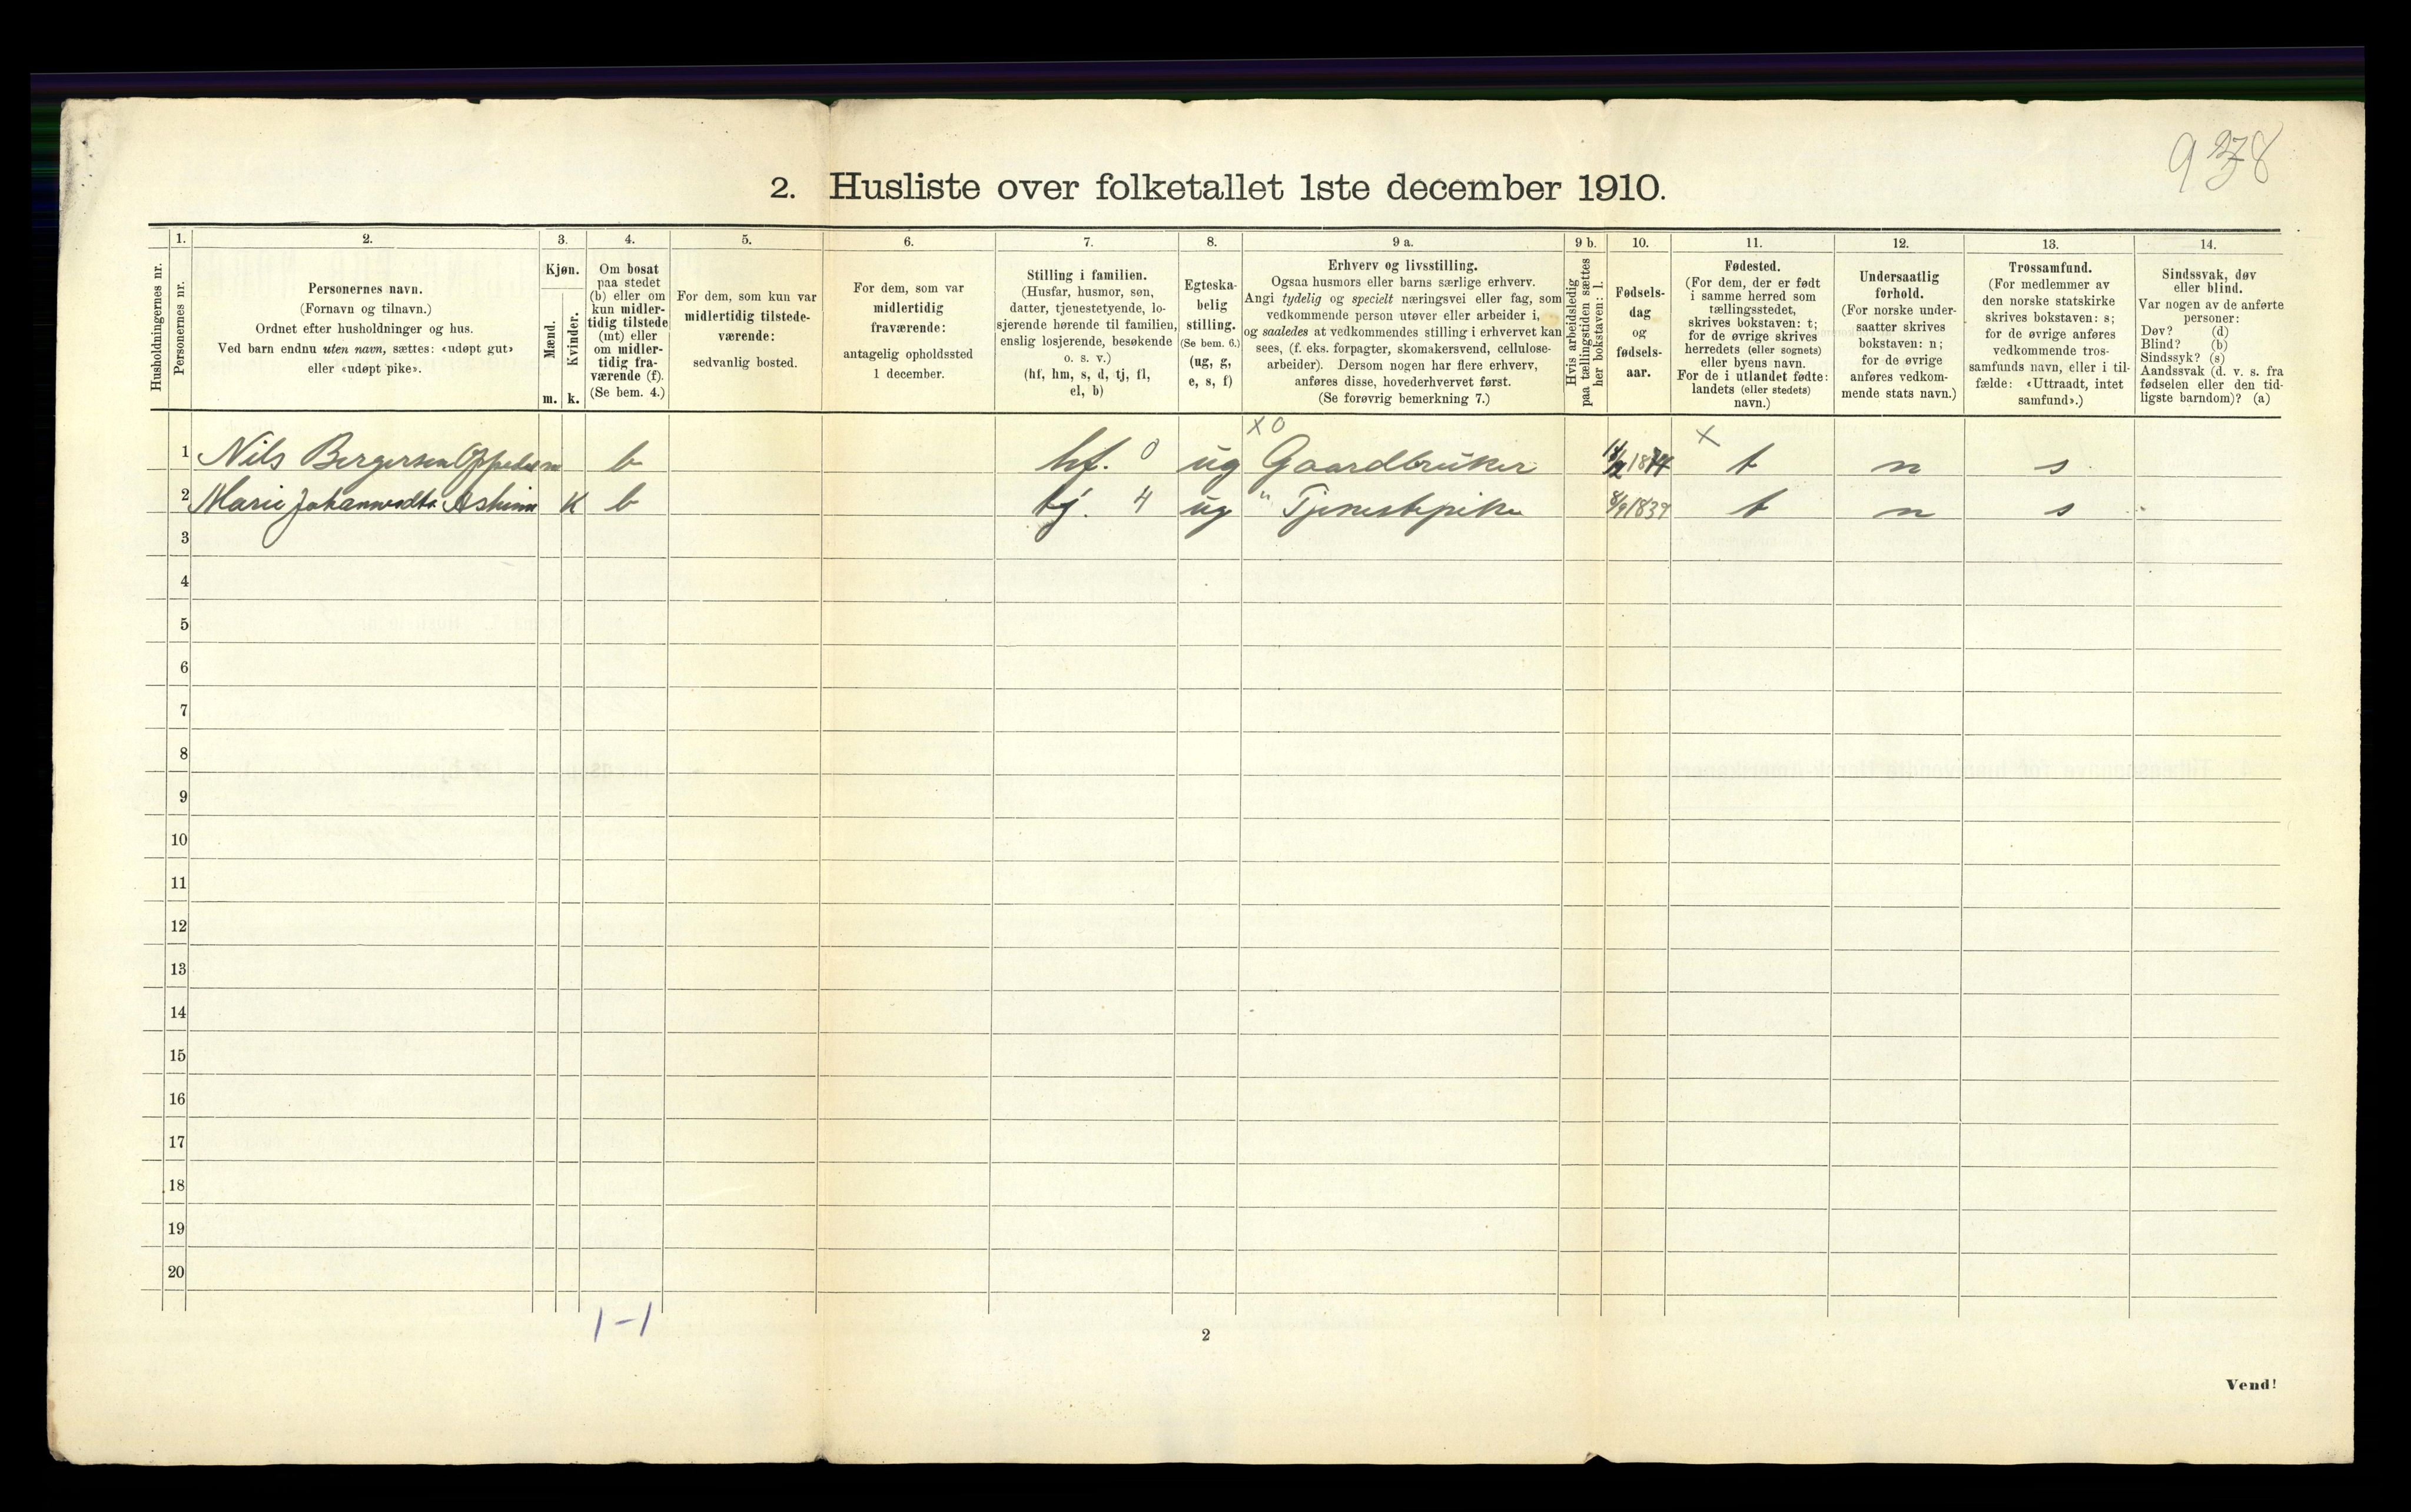 938
2. Husliste over folketallet 1ste december 1910.
Husholdningernes nr.
1.
Personernes nr.
2.
Personernes navn.
(Fornavn og tilnavn.)
Ordnet efter husholdninger og hus.
Ved barn endnu uten navn, sættes: «udøpt gut»
eller «udøpt pike».
3.
Kjøn.
Mænd.
Kvinder.
m. k.
4.
Om bosat
paa stedet
(b) eller om
kun midler-
tidig tilstede
(mt) eller
om midler-
tidig fra-
værende (f).
(Se bem. 4.)
5.
For dem, som kun var
midlertidig tilstede-
værende:
sedvanlig bosted.
6.
For dem, som var
midlertidig
fraværende:
antagelig opholdssted
1 december.
7.
Stilling i familien.
(Husfar, husmor, søn,
datter, tjenestetyende, lo-
sjerende hørende til familien,
enslig losjerende, besøkende
o. s. v.)
(hf, hm, s, d, tj, fl,
el, b)
8.
Egteska-
belig
stilling.
(Se bem. 6.)
(ug, g,
e, s, f)
9 a.
Erhverv og livsstilling.
Ogsaa husmors eller barns særlige erhverv.
Angi tydelig og specielt næringsvei eller fag, som
vedkommende person utøver eller arbeider i,
og saaledes at vedkommendes stilling i erhvervet kan
sees, (f. eks. forpagter, skomakersvend, cellulose-
arbeider). Dersom nogen har flere erhverv,
anføres disse, hovederhvervet først.
(Se forøvrig bemerkning 7.)
9 b.
Hvis arbeidsledig
paa tællingstiden sættes
her bokstaven: l.
10.
Fødsels-
dag
og
fødsels-
aar.
11.
Fødested.
(For dem, der er født
i samme herred som
tællingsstedet,
skrives bokstaven: t;
for de øvrige skrives
herredets (eller sognets)
eller byens navn.
For de i utlandet fødte:
landets (eller stedets)
navn.)
12.
Undersaatlig
forhold.
(For norske under-
saatter skrives
bokstaven: n;
for de øvrige
anføres vedkom-
mende stats navn.)
13.
Trossamfund.
(For medlemmer av
den norske statskirke
skrives bokstaven: s;
for de øvrige anføres
vedkommende tros-
samfunds navn, eller i til-
fælde: «Uttraadt, intet
samfund».)
14.
Sindssvak, døv
eller blind.
Var nogen av de anførte
personer:
Døv? (d)
Blind? (b)
Sindssyk? (s)
Aandssvak (d. v. s. fra
fødselen eller den tid-
ligste barndom)? (a)
x 0 x
1 Nils Bergersen m b hf. 0 ug Gaardbruker t n s
2 Marie K b tj. 4 ug " Tjenestepike t n s
3
4
5
6
7
8
9
10
11
12
13
14
15
16
17
18
19
20
1-1
2
Vend!